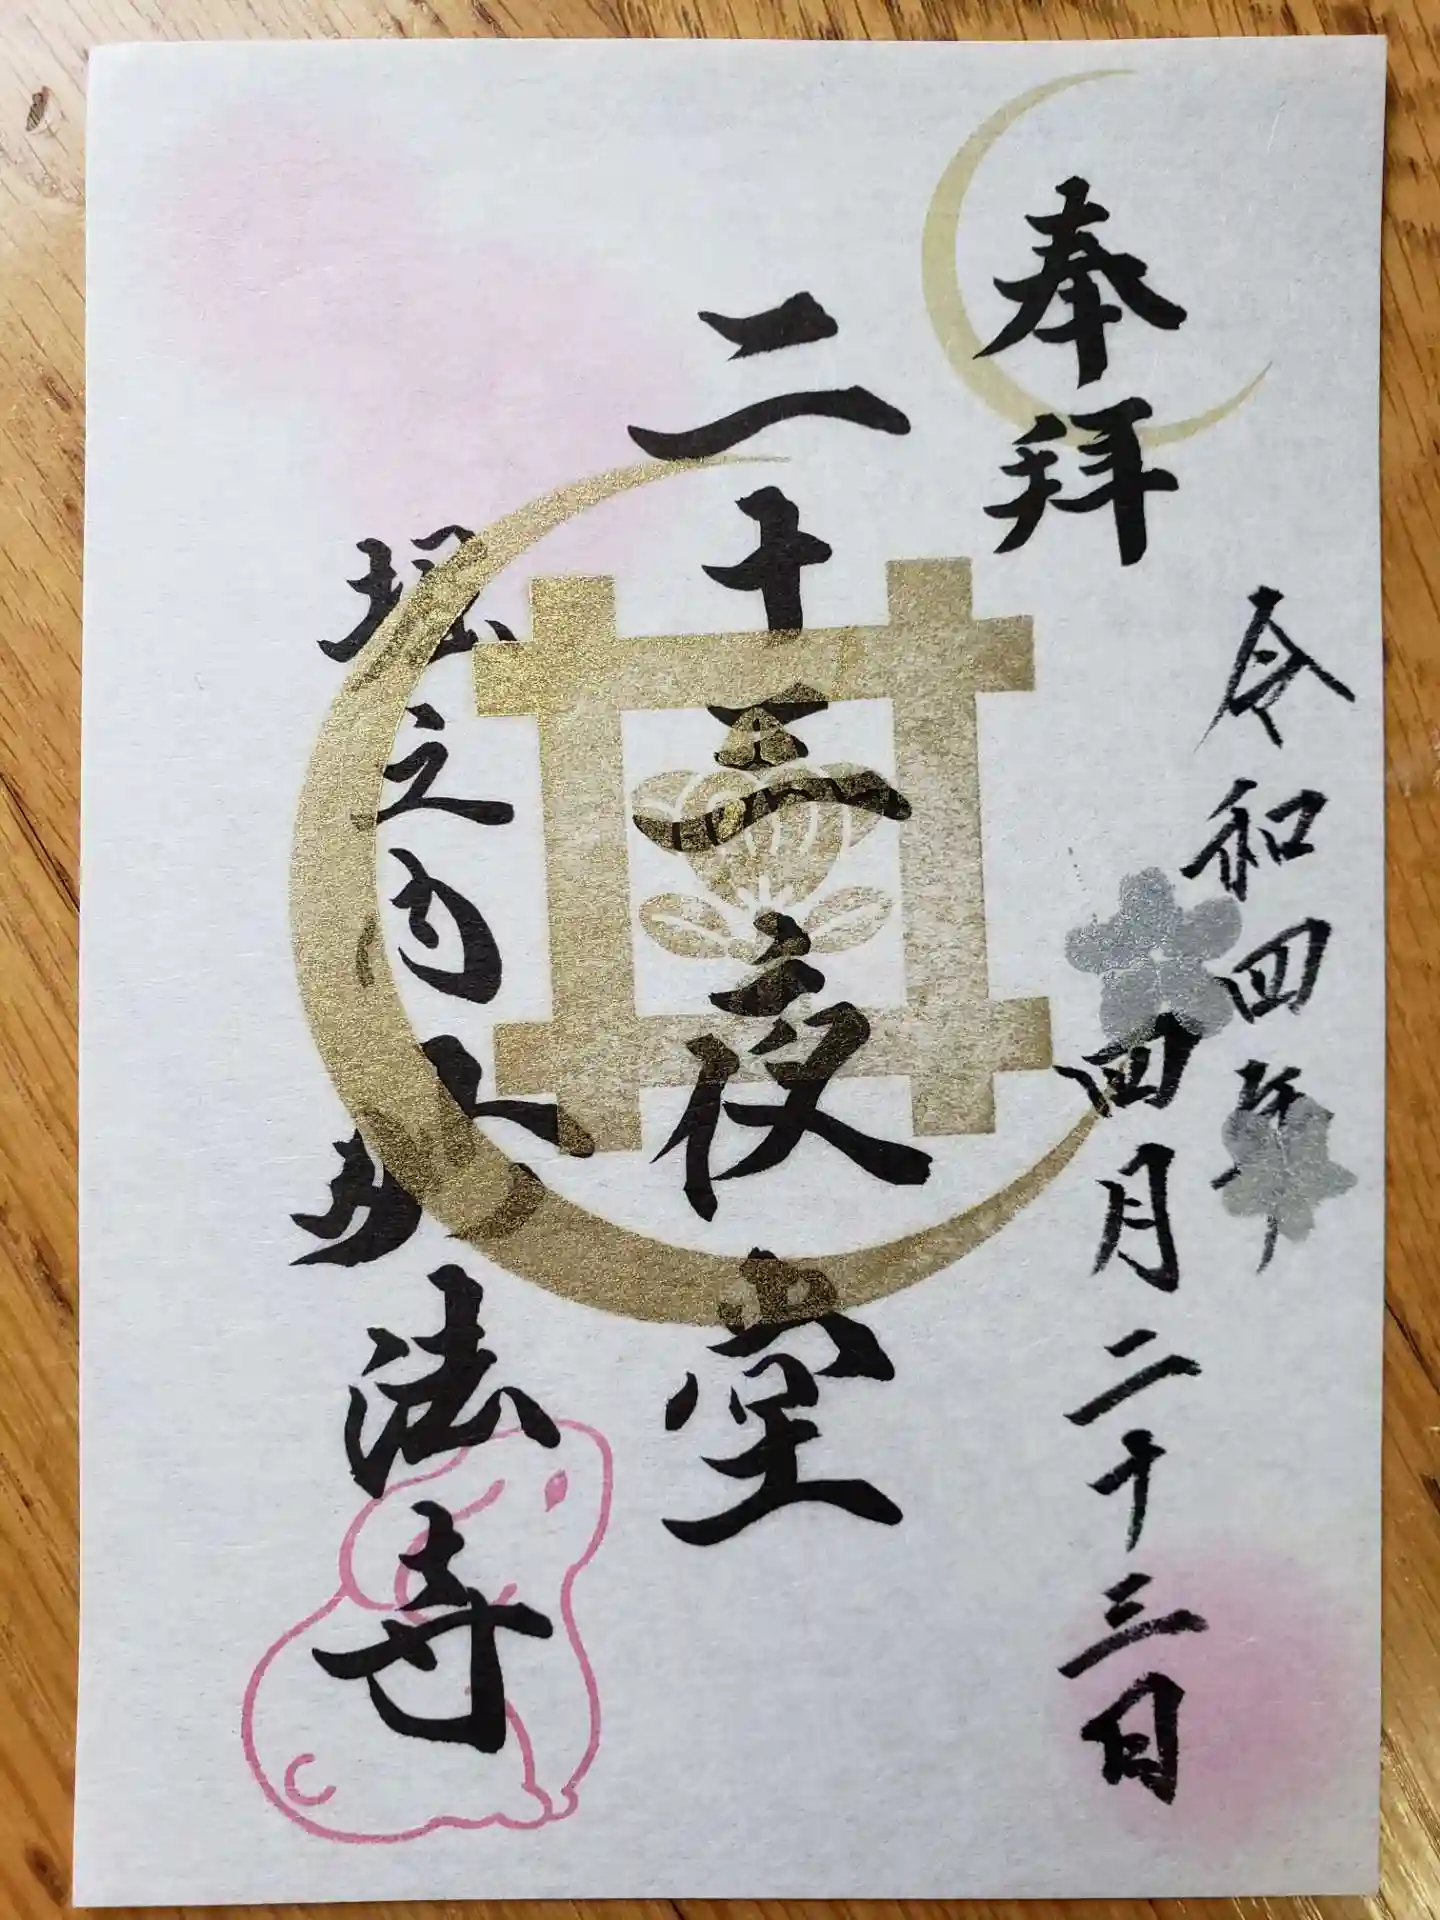 奉拝
令和四年
四月二十三日
二十三夜堂
堀之内 妙法寺